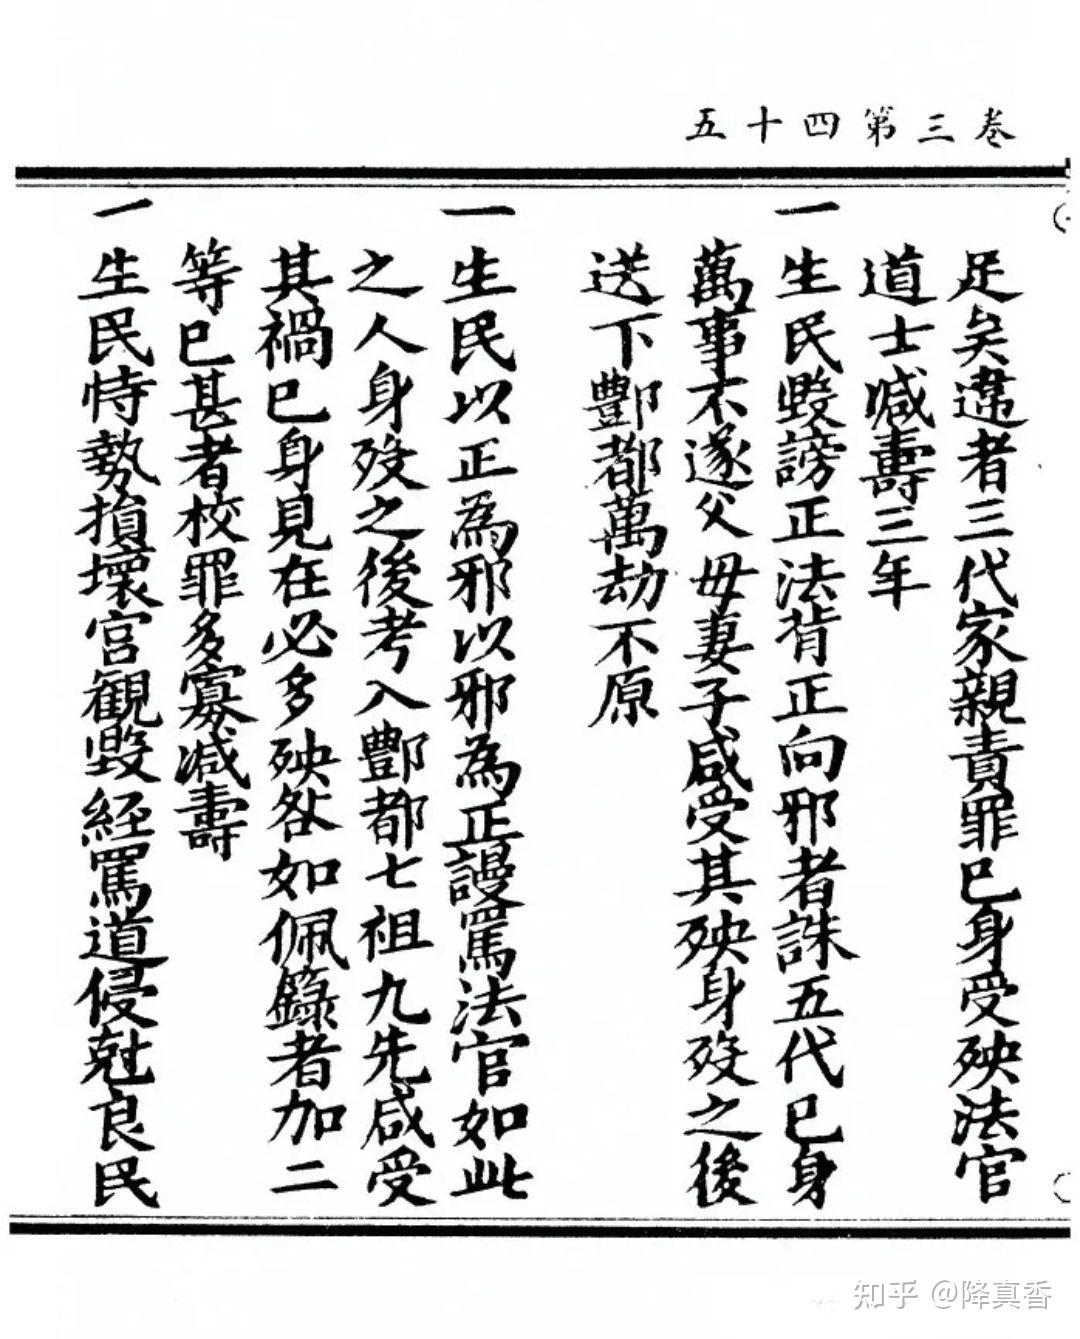 卷三第四十五
足矣違者三代家親責罪已身受殃法官
道士減壽三年
一生民毀謗正法背正向邪者誅五代已身
萬事不遂父母妻子咸受其殃身歿之後
送下酆都萬劫不原
一生民以正為邪以邪為正謾罵法官如此
之人身歿之後考入酆都七祖九先咸受
其禍已身見在必多殃咎如佩籙者加二
等已甚者校罪多寡減壽
一生民恃勢損壞宮觀毀經罵道侵尅良民
知乎 @降真香